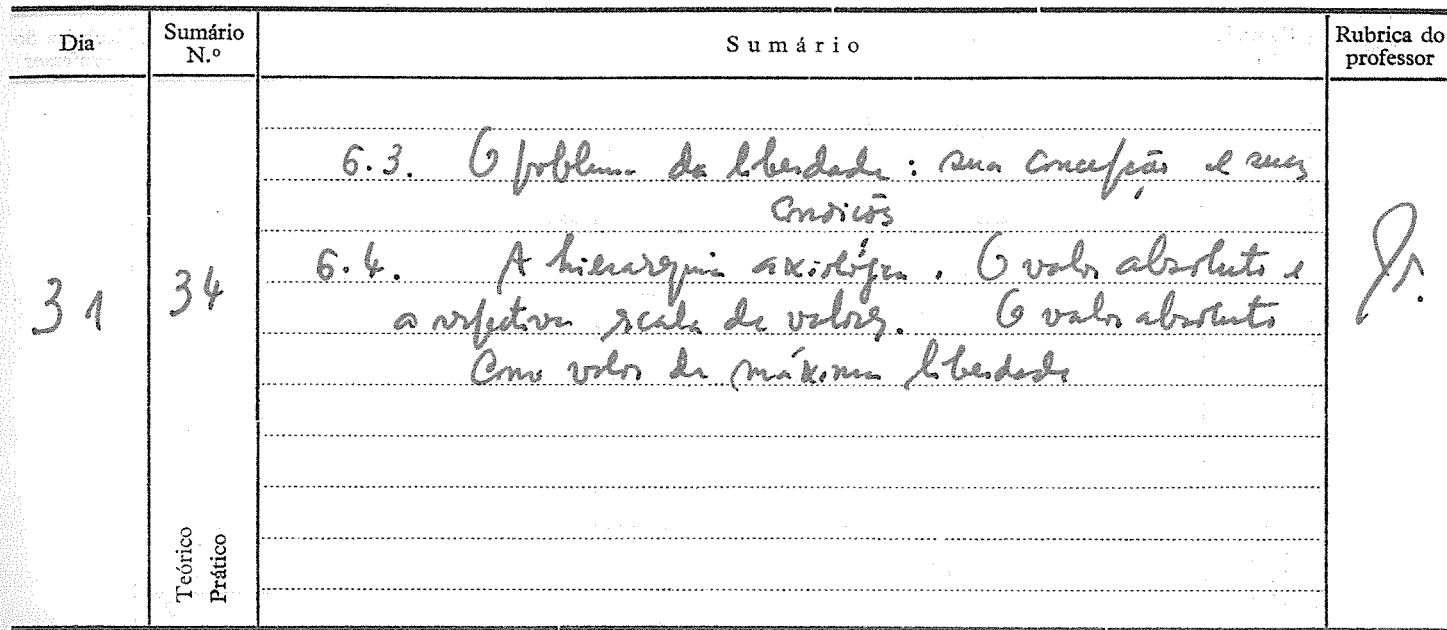 Dia
Sumário N.º
Sumário
Rubrica do professor
31
34
6.3. O problema da liberdade: sua concepção e suas
condições
6.4. A hierarquia axiológica. O valor absoluto e
a respectiva escala de valores. O valor absoluto
como valor da máxima liberdade
Teórico
Prático